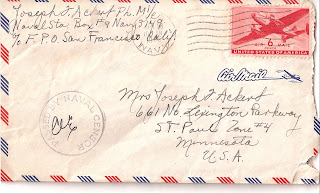 Joseph F. Ackert Ph. M 1/c
Naval Sta Br. F# Navy 3149
c/o F.P.O. San Francisco, Calif.
NAVY
6¢
AIR MAIL
UNITED STATES OF AMERICA
Air Mail
PASSED BY NAVAL CENSOR
Mrs Joseph F. Ackert
661 No. Lexington Parkway
St. Paul Zone #4
Minnesota
U.S.A.